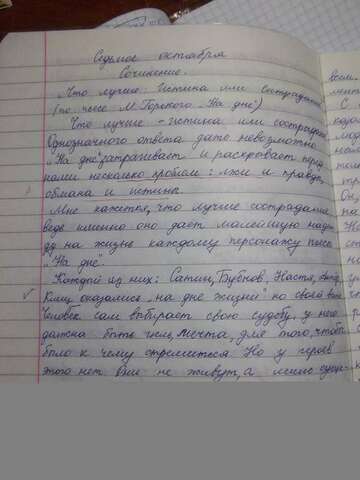 Седьмое октября
Сочинение.
Что лучше: Истина или сострадание
(по пьесе М. Горького „На дне")
Что лучше - истина или сострадание
Однозначного ответа дать невозможно
„На дне" затрагивает и раскрывает перед
нами несколько проблем: лжи и правды,
обмана и истина.
Мне кажется, что лучше сострадание
ведь именно оно даёт малейшую надеж
ду на жизнь каждому персонажу пьесы
„На дне".
Каждый из них: Сатин, Бубнов, Настя,
Клещ оказались „на дне жизни" по своей воле
Человек сам выбирает свою судьбу, у него
должна быть цель, мечта, для того, чтобы
было к чему стремиться Но у героев
этого нет. Они не живут, а лишь сущес-